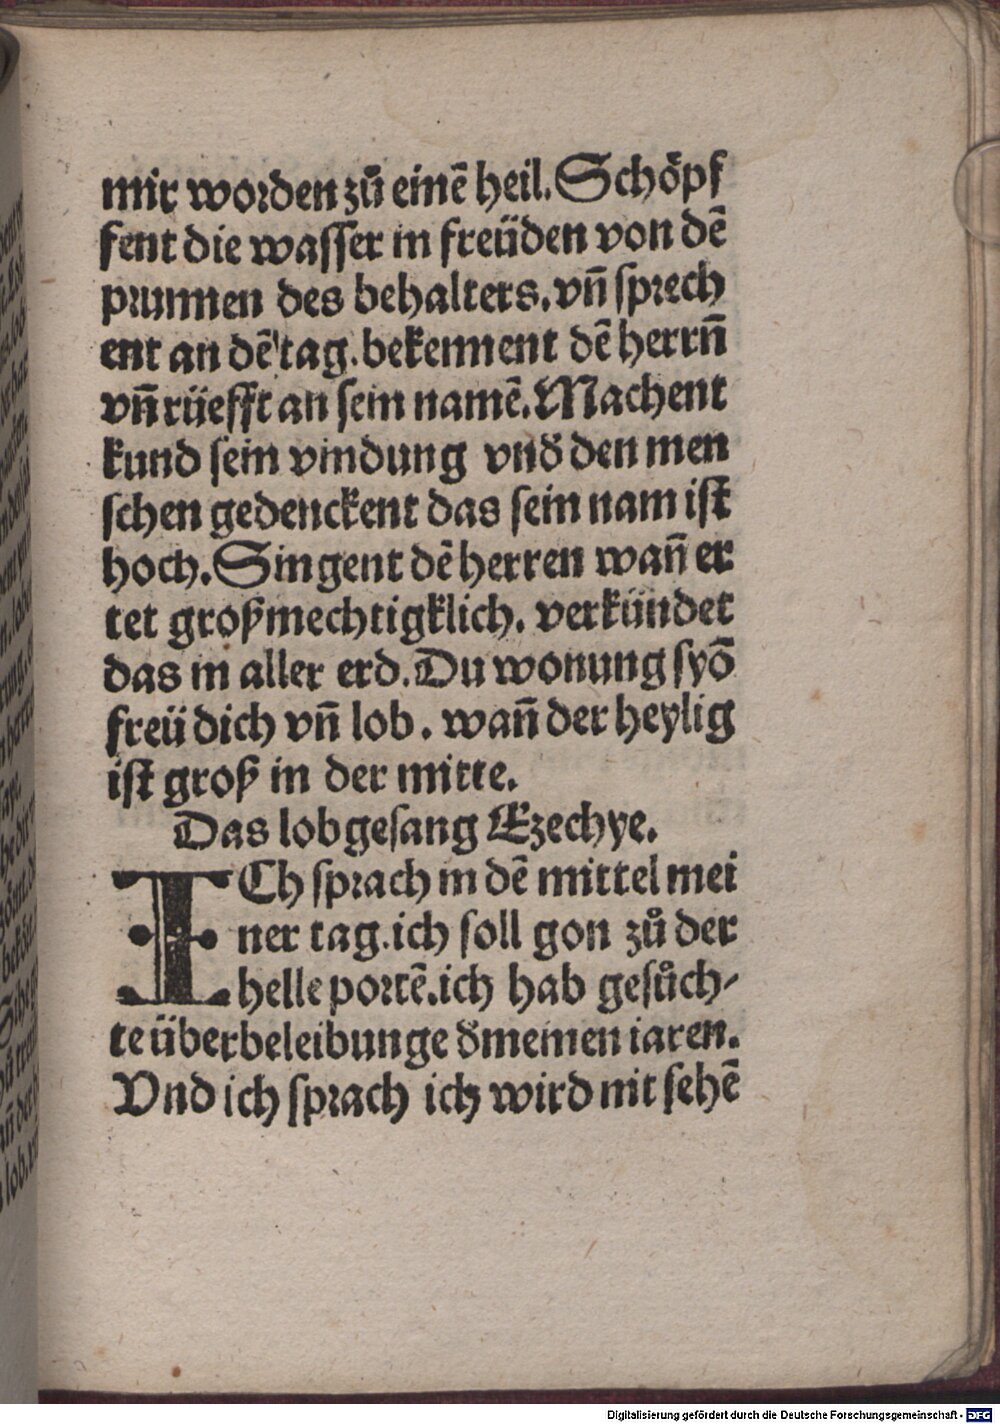 mir worden zů einē heil. Schöpf
fent die wasser in freüden von dē
prunnen des behalters. vn̄ sprech
ent an dē tag. bekennent dē herrn̄
vn̄ rüefft an sein namē. Machent
kund sein vindung vnd̕ den men
schen gedenckent das sein nam ist
hoch. Singent dē herren wan̄ er
tet großmechtigklich. verkündet
das in aller erd. Du wonung syō
freü dich vn̄ lob. wan̄ der heylig
ist groß in der mitte.
Das lobgesang Ezechye.
ICh sprach in dē mittel mei
ner tag. ich soll gon zů der
helle portē. ich hab gesůch-
te überbeleibunge d̕ meinen iaren.
Vnd ich sprach ich wird nit sehē
Digitalisierung gefördert durch die Deutsche Forschungsgemeinschaft - DFG